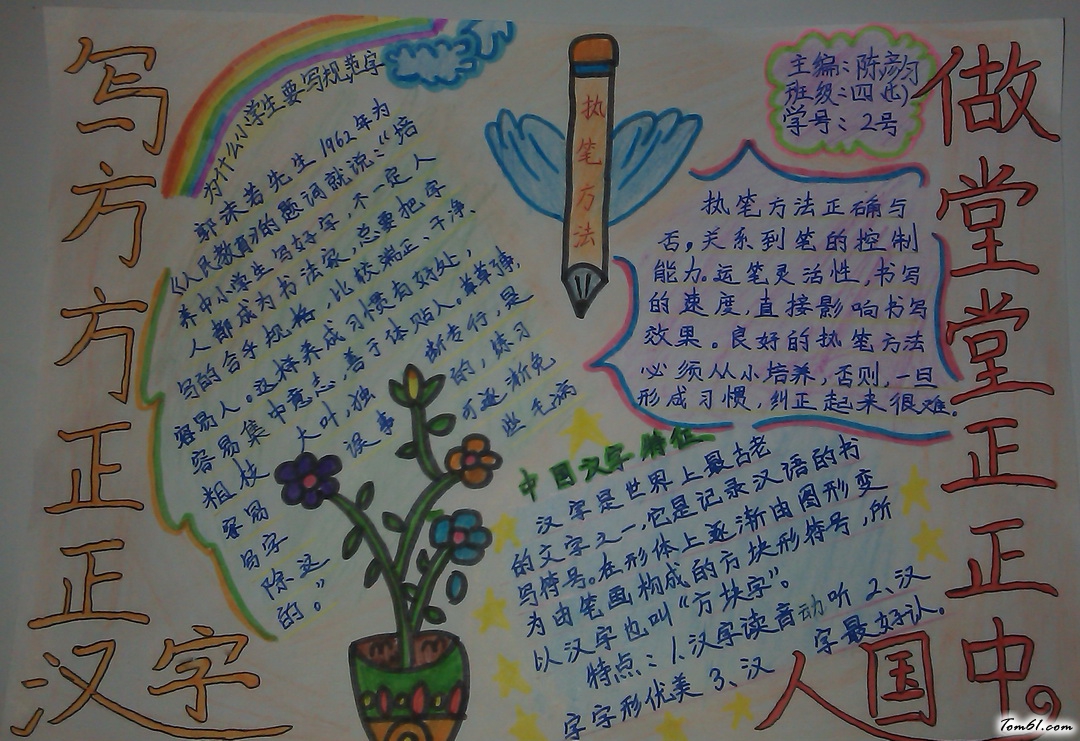 写方方正正汉字
为什么小学生要写规范字
郭沫若先生1962年为
《人民教育》的题词就说:“培
养中小学生写好字,不一定人
人都成为书法家,总要把字
写的合乎规格,比较端正、干净、
容易人。这样养成习惯有好处,
容易集中意志,善于体贴人。草草了事,
粗枝大叶,独断专行,是
容易误事的,练习
写字可逐渐免
除这些毛病
的。”
执笔方法
主编:陈彦匀
班级:四(七)
学号:2号
执笔方法正确与
否,关系到笔的控制
能力。运笔灵活性,书写
的速度,直接影响书写
效果。良好的执笔方法
必须从小培养,否则,一旦
形成习惯,纠正起来很难。
中国汉字特征
汉字是世界上最古老
的文字之一,它是记录汉语的书
写符号。在形体上逐渐由图形变
为由笔画构成的方块形符号,所
以汉字也叫“方块字”。
特点:1.汉字读音动听 2、汉
字字形优美 3、汉字最好认。
做堂堂正正中国人
Tom61.com